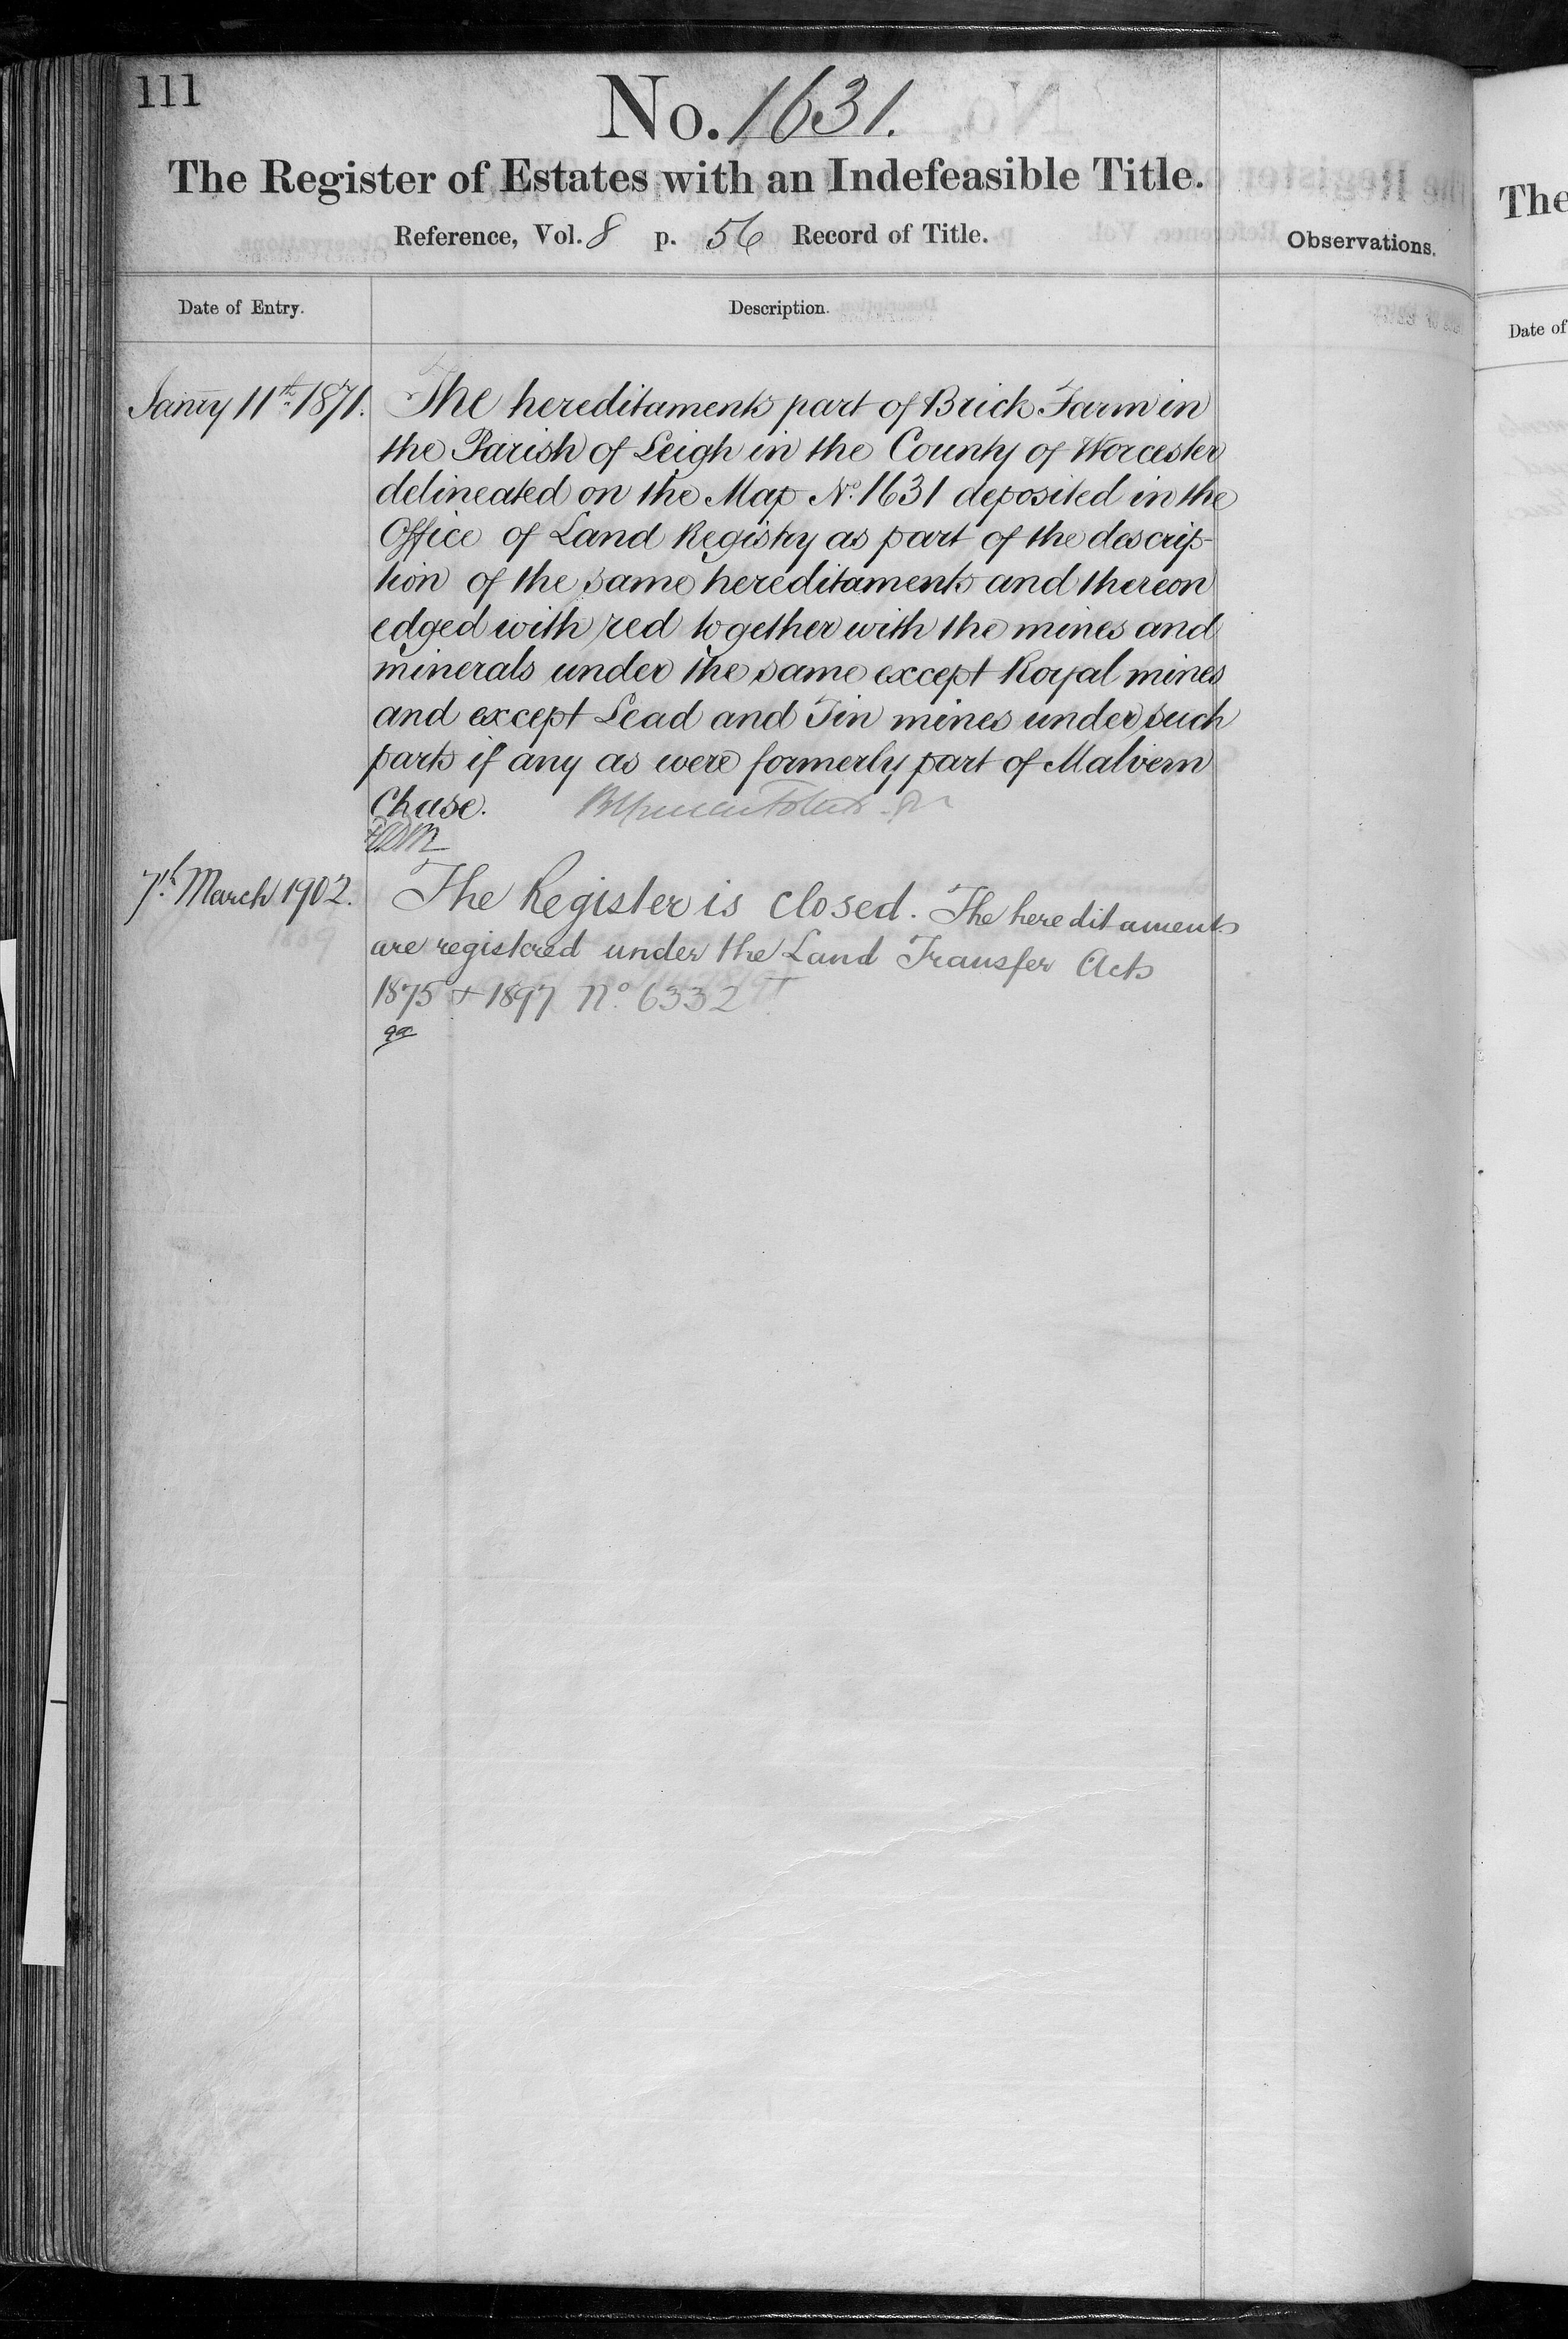 111
No. 1631.
The Register of Estates with an Indefeasible Title.
Reference, Vol. 8 p. 56 Record of Title.
Observations.
Date of Entry.
Description.
Janry 11th 1871.
The hereditaments part of Brick Farm in
the Parish of Leigh in the County of Worcester
delineated on the Map No. 1631 deposited in the
Office of Land Registry as part of the descrip-
tion of the same hereditaments and thereon
edged with red together with the mines and
minerals under the same except Royal mines
and except Lead and Tin mines under such
parts if any as were formerly part of Malvern
Chase.
7th March 1902.
The Register is closed. The hereditaments
are registered under the Land Transfer Acts
1875 & 1897 No. 6332
The
Date of